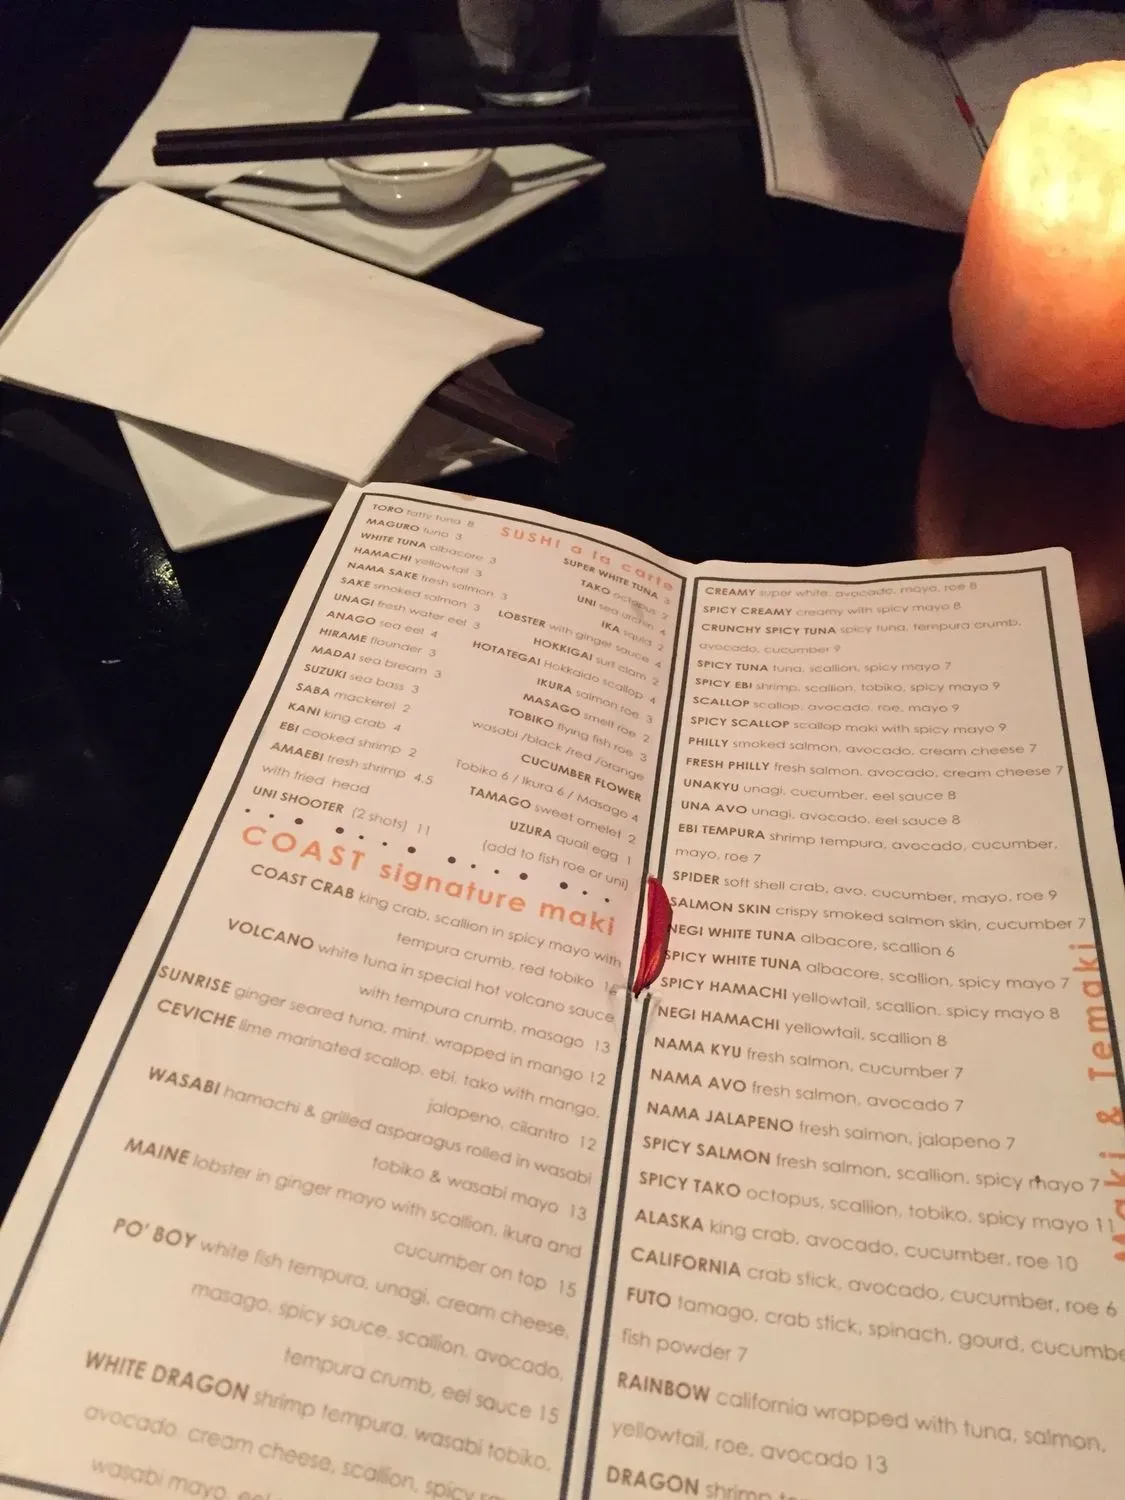 SUSHI a la carte
TORO fatty tuna 8
MAGURO tuna 3
WHITE TUNA albacore 3
HAMACHI yellowtail 3
NAMA SAKE fresh salmon 3
SAKE smoked salmon 3
UNAGI fresh water eel 3
ANAGO sea eel 4
HIRAME flounder 3
MADAI sea bream 3
SUZUKI sea bass 3
SABA mackerel 2
KANI king crab 4
EBI cooked shrimp 2
AMAEBI fresh shrimp 4.5
with fried head
UNI SHOOTER (2 shots) 11
SUPER WHITE TUNA 3
TAKO octopus 2
UNI sea urchin 4
IKA squid 2
LOBSTER with ginger sauce 4
HOKKIGAI surf clam 2
HOTATEGAI Hokkaido scallop 4
IKURA salmon roe 3
MASAGO smelt roe 2
TOBIKO flying fish roe 3
wasabi /black /red /orange
CUCUMBER FLOWER
Tobiko 6 / Ikura 6 / Masago 4
TAMAGO sweet omelet 2
UZURA quail egg 1
(add to fish roe or uni)
COAST signature maki
COAST CRAB king crab, scallion in spicy mayo with
tempura crumb, red tobiko
VOLCANO white tuna in special hot volcano sauce
with tempura crumb, masago 13
SUNRISE ginger seared tuna, mint, wrapped in mango 12
CEVICHE lime marinated scallop, ebi, tako with mango,
jalapeno, cilantro 12
WASABI hamachi & grilled asparagus rolled in wasabi
tobiko & wasabi mayo 13
MAINE lobster in ginger mayo with scallion, ikura and
cucumber on top 15
PO' BOY white fish tempura, unagi, cream cheese,
masago, spicy sauce, scallion, avocado,
tempura crumb, eel sauce 15
WHITE DRAGON shrimp tempura, wasabi tobiko,
avocado, cream cheese, scallion, spicy
wasabi mayo, eel
CREAMY super white, avocado, mayo, roe 8
SPICY CREAMY creamy with spicy mayo 8
CRUNCHY SPICY TUNA spicy tuna, tempura crumb,
avocado, cucumber 9
SPICY TUNA tuna, scallion, spicy mayo 7
SPICY EBI shrimp, scallion, tobiko, spicy mayo 9
SCALLOP scallop, avocado, roe, mayo 9
SPICY SCALLOP scallop maki with spicy mayo 9
PHILLY smoked salmon, avocado, cream cheese 7
FRESH PHILLY fresh salmon, avocado, cream cheese 7
UNAKYU unagi, cucumber, eel sauce 8
UNA AVO unagi, avocado, eel sauce 8
EBI TEMPURA shrimp tempura, avocado, cucumber,
mayo, roe 7
SPIDER soft shell crab, avo, cucumber, mayo, roe 9
SALMON SKIN crispy smoked salmon skin, cucumber 7
NEGI WHITE TUNA albacore, scallion 6
SPICY WHITE TUNA albacore, scallion, spicy mayo 7
SPICY HAMACHI yellowtail, scallion, spicy mayo 8
NEGI HAMACHI yellowtail, scallion 8
NAMA KYU fresh salmon, cucumber 7
NAMA AVO fresh salmon, avocado 7
NAMA JALAPENO fresh salmon, jalapeno 7
SPICY SALMON fresh salmon, scallion, spicy mayo 7
SPICY TAKO octopus, scallion, tobiko, spicy mayo 11
ALASKA king crab, avocado, cucumber, roe 10
CALIFORNIA crab stick, avocado, cucumber, roe 6
FUTO tamago, crab stick, spinach, gourd, cucumbe
fish powder 7
RAINBOW california wrapped with tuna, salmon,
yellowtail, roe, avocado 13
DRAGON shrimp
Maki & Temaki